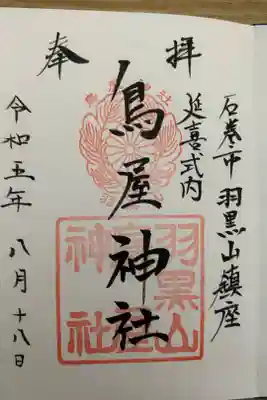 奉拝
石巻市 羽黒山鎮座
延喜式内
鳥屋神社
令和五年 八月十八日